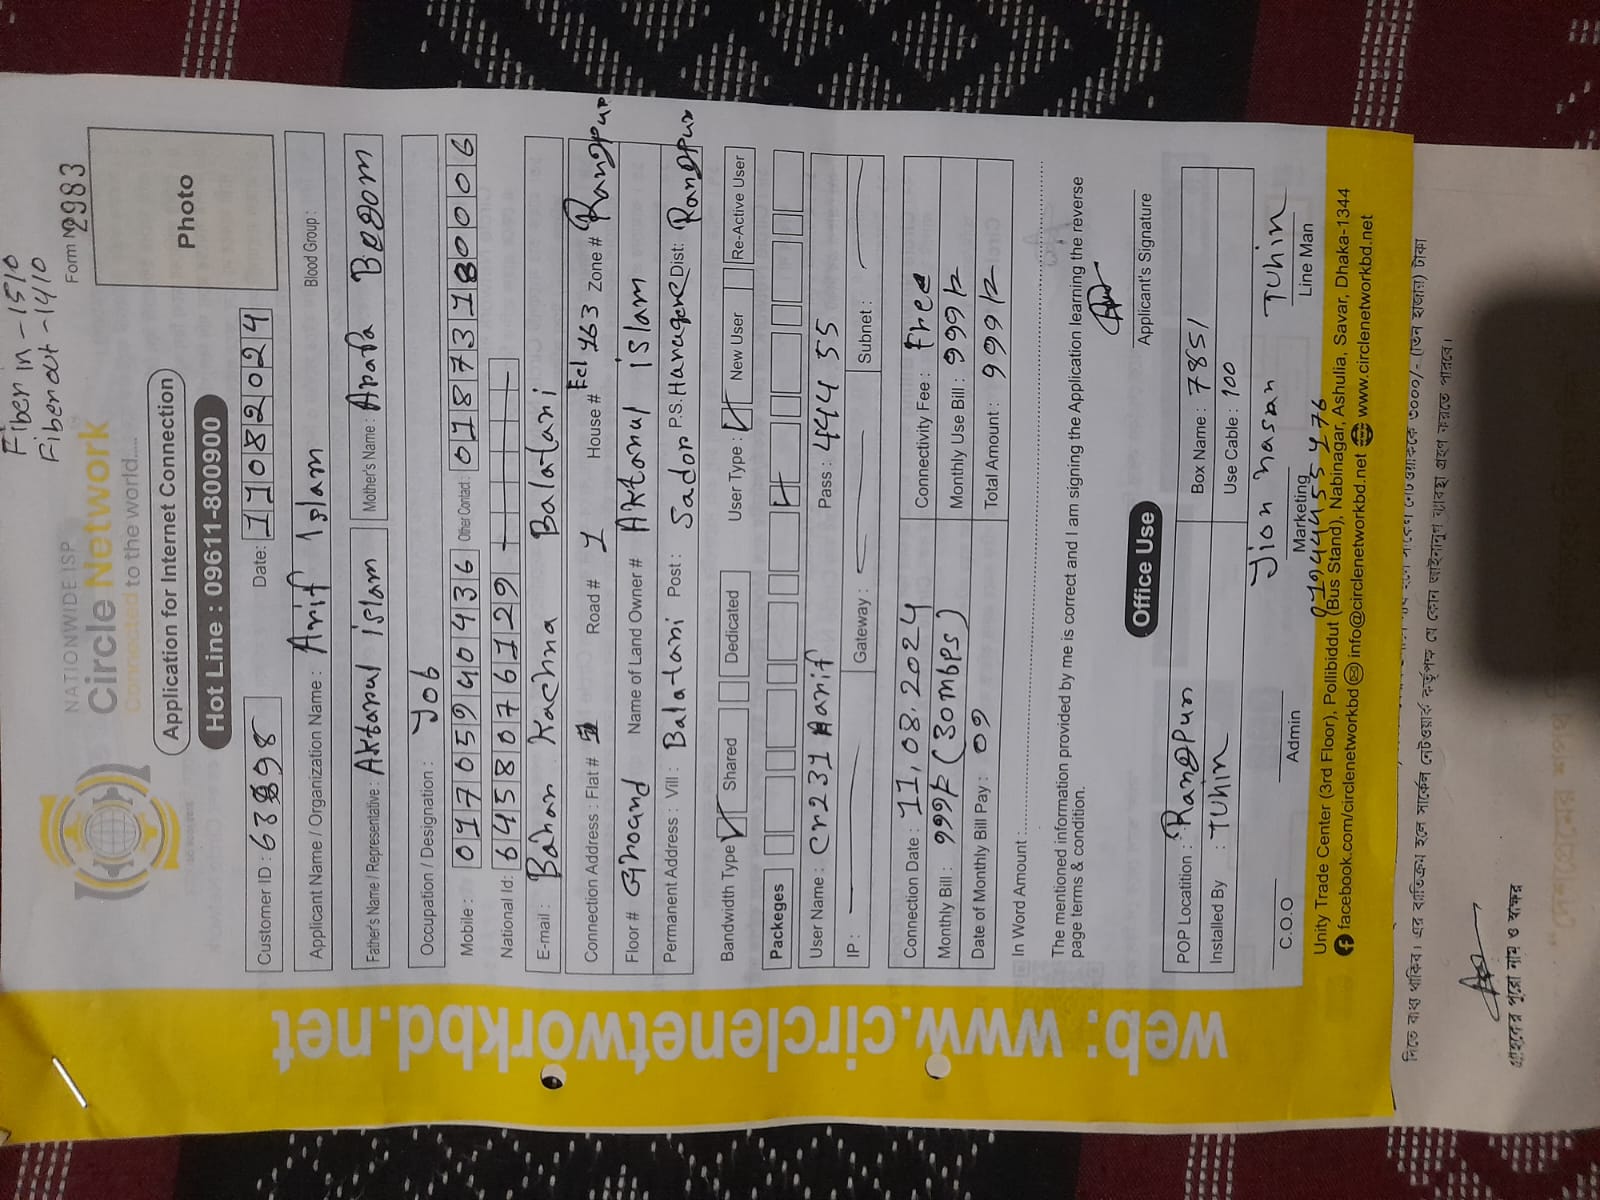 Fiber in - 1510
Fiberout - 1410
Form No 2983
NATIONWIDE ISP
Circle Network
Connected to the world.....
Application for Internet Connection
Hot Line : 09611-800900
Photo
Customer ID : 63898
Date: 11082024
Applicant Name / Organization Name : Arif Islam
Blood Group :
Father's Name / Representative : Aktarul islam
Mother's Name : Arafa Begom
Occupation / Designation : Job
Mobile : 01705940436 Other Contact : 01873180006
National Id: 6458076129
E-mail : Bahar Kachna Balatari
Connection Address : Flat # Road # 1 House # Fel 763 Zone # Rangpur
Floor # Ground Name of Land Owner # Aktarul islam
Permanent Address : Vill : Balatari Post : Sador P.S. Dist: Rangpur
Bandwidth Type Shared Dedicated User Type : New User Re-Active User
Packeges
User Name : Cr231 Aarif Pass : 444 55
IP : Gateway : Subnet :
Connection Date : 11,08,2024 Connectivity Fee : Free
Monthly Bill : 999/- (30mbps) Monthly Use Bill : 999/-
Date of Monthly Bill Pay : 09 Total Amount : 999/-
In Word Amount :
The mentioned information provided by me is correct and I am signing the Application learning the reverse
page terms & condition.
Applicant's Signature
Office Use
POP Locatition : Rangpur Box Name : 7851
Installed By : Tuhin Use Cable : 100
Jion hasan Tuhin
C.O.O Admin Marketing Line Man
Unity Trade Center (3rd Floor), Pollibiddut (Bus Stand), Nabinagar, Ashulia, Savar, Dhaka-1344
facebook.com/circlenetworkbd info@circlenetworkbd.net www.circlenetworkbd.net
web: www.circlenetworkbd.net
দিতে বাধ্য থাকিব। এর ব্যতিক্রম হলে সার্কেল নেটওয়ার্ক কর্তৃপক্ষ যে কোন আইনানুগ ব্যবস্থা গ্রহণ করতে পারবে।
গ্রাহকের পুরো নাম ও স্বাক্ষর